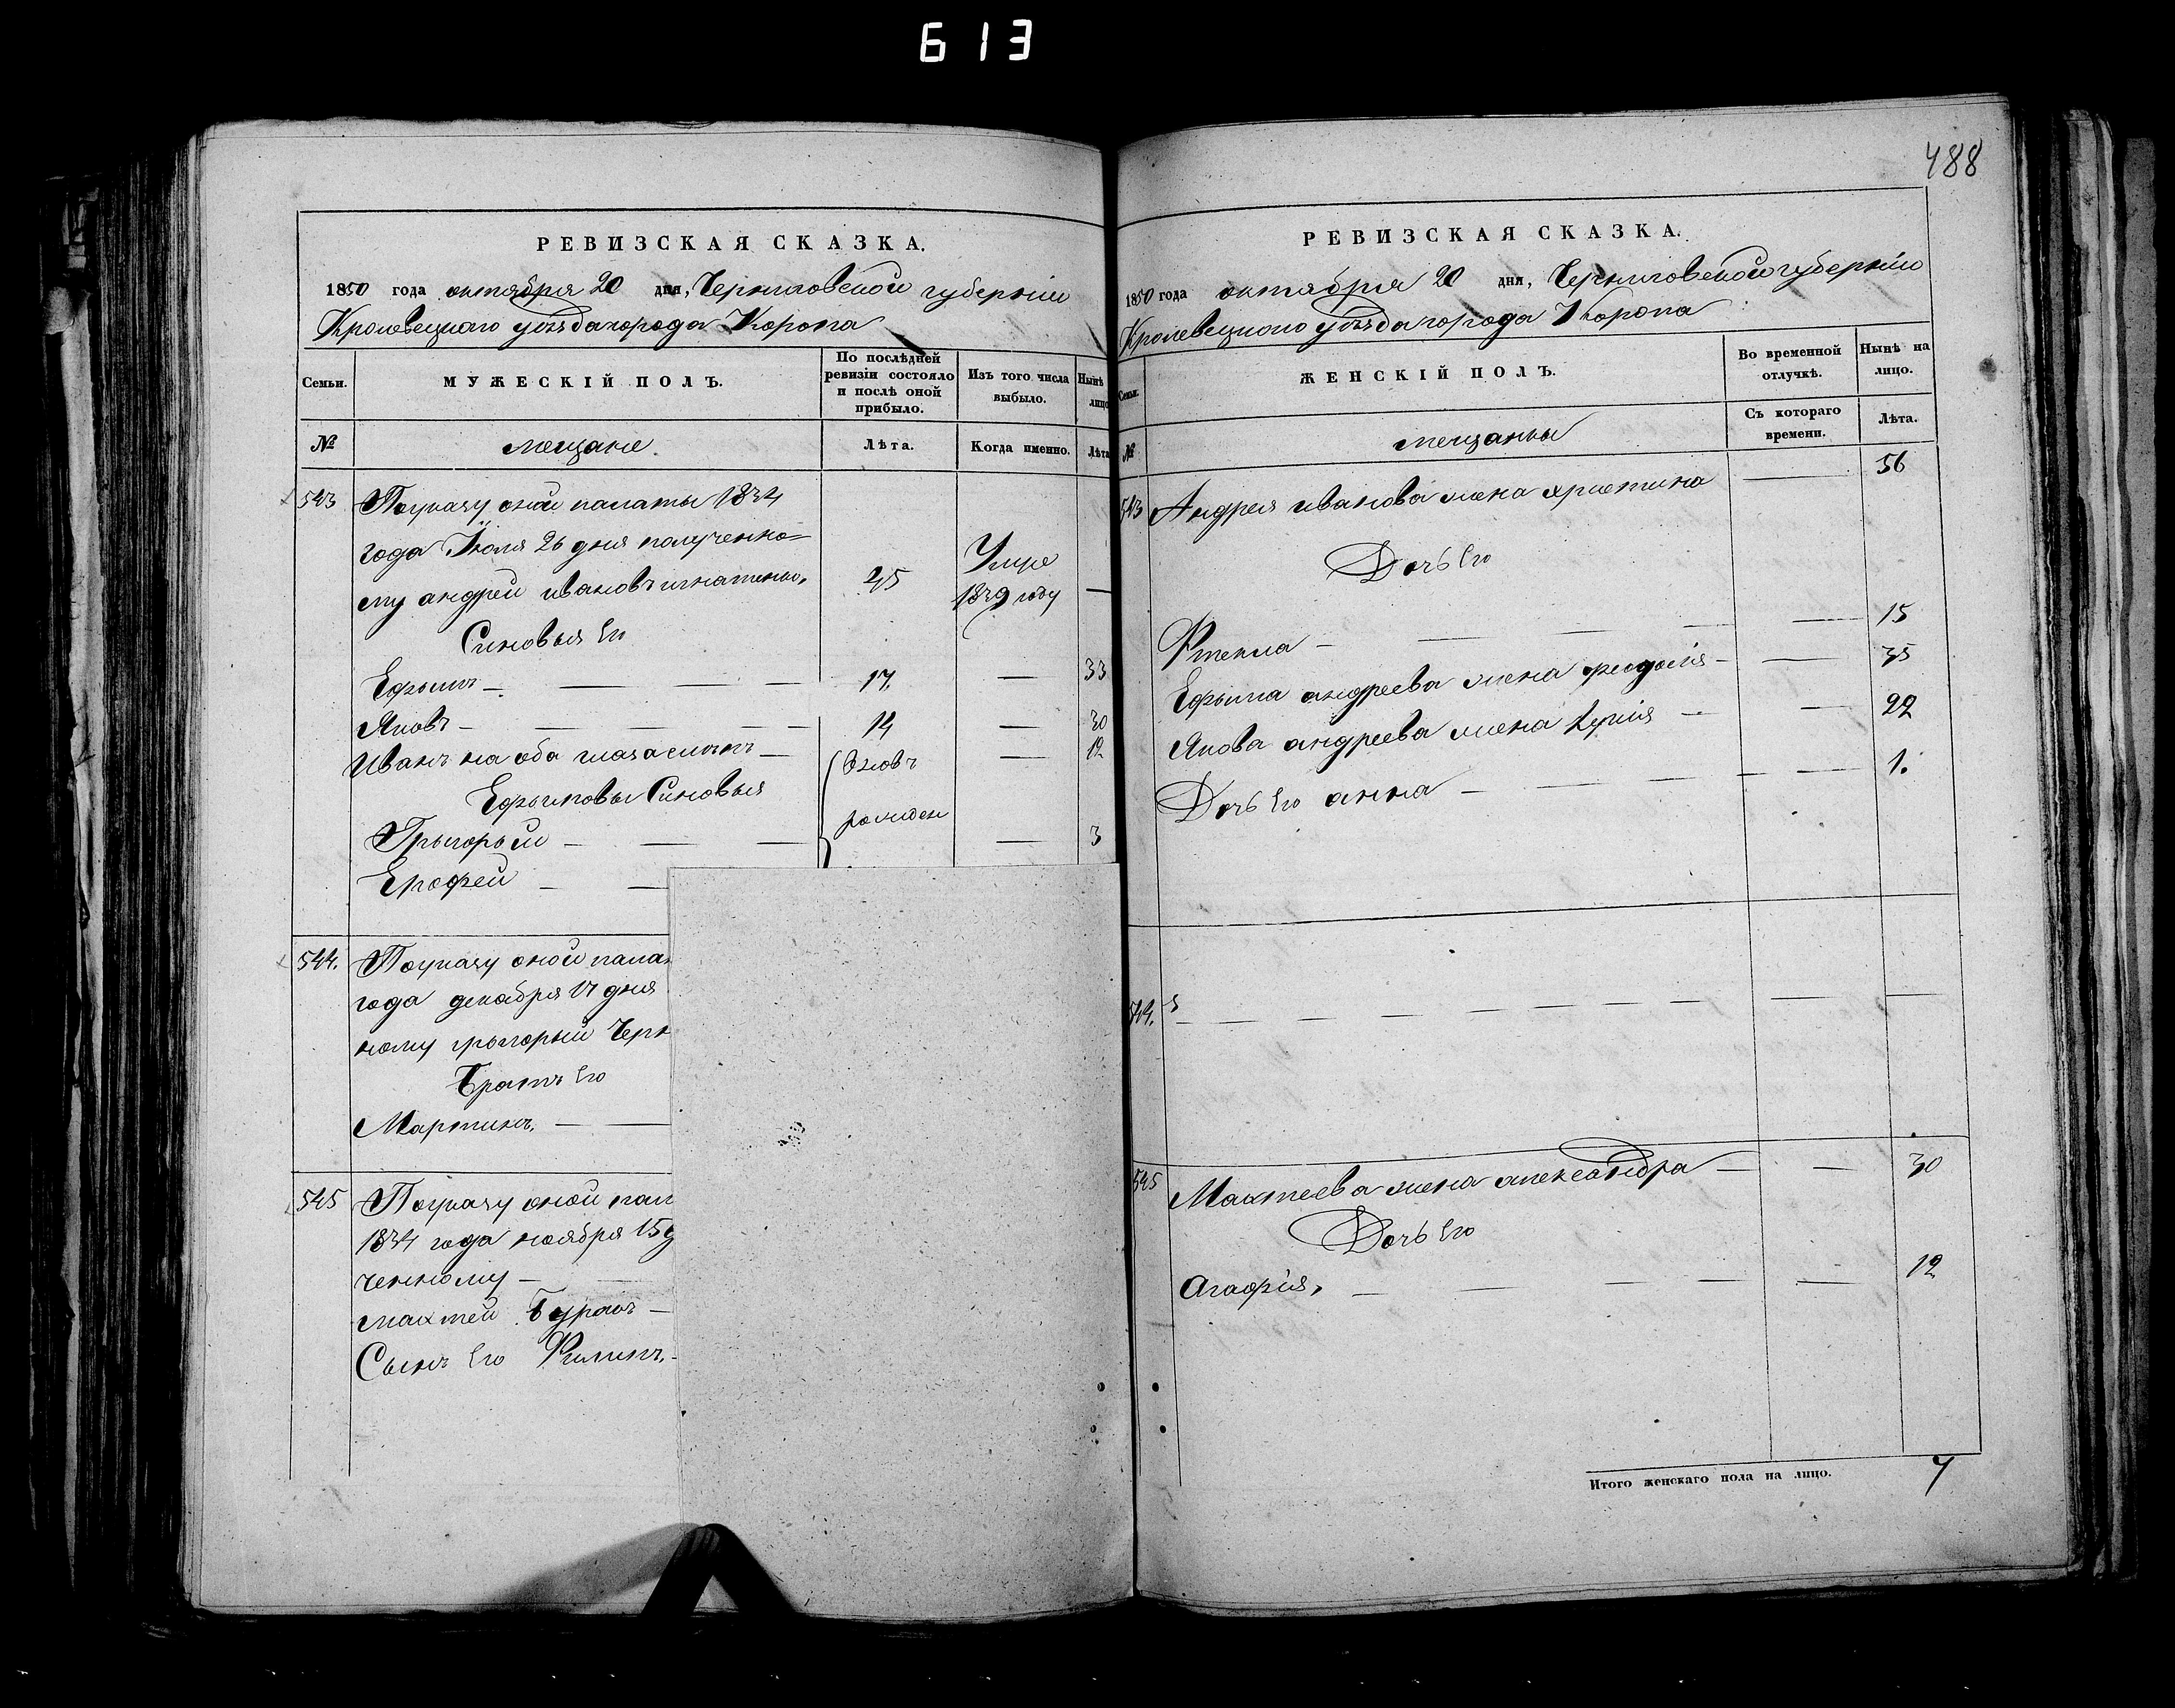 613
488
РЕВИЗСКАЯ СКАЗКА.
1850 года октября 20 дня, Черниговской губернiи
Кролевецкаго уѣзда города Коропа
Семьи.
МУЖЕСКIЙ ПОЛЪ.
По послѣдней ревизiи состояло и послѣ оной прибыло.
Изъ того числа выбыло.
Нынѣ лицо
№
мещане.
Лѣта.
Когда именно.
Лѣта
543 Поуказу оной палаты 1834
года Iюля 26 дня полученно=
му андрей ивановъ 45 Умре 1839 году —
Синовья Его
Ефымъ — 17. — 33
Яковъ — 14 — 30
Иванъ на оба глаза слѣпъ — вновь — 12
Ефымовы Синовья
рожден
Грыгорый — — 3
Ерофей —
544. Поуказу оной пала
года декабря 17 дня
ному грыгорый Черн
Братъ Его
Мартинъ. —
545 Поуказу оной пал
1834 года ноября 15 д
ченному —
махтей Буракъ —
Сынъ Его Филипъ. -
РЕВИЗСКАЯ СКАЗКА.
1850 года октября 20 дня, Черниговской губернiи
Кролевецкаго уѣзда города Коропа
Семьи.
ЖЕНСКIЙ ПОЛЪ.
Во временной отлучкѣ.
Нынѣ на лицо.
№
мещанкы
Съ котораго времени.
Лѣта.
543 Андрея иванова жена христина — 56
Дочь Его
Фтекла — — 15
Ефыма андреева жена феодосiя — — 35
Якова андреева жена — — 22
Дочь Его анна — — 1.
544. — — —
545 Махтеева жена александра — — 30
Дочь Его
Агафiя, — — 12
Итого женскаго пола на лицо. 7